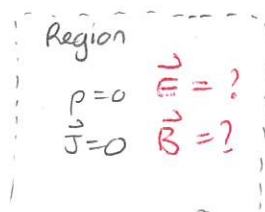 Region
ρ=0 E⃗ = ?
J⃗=0 B⃗ = ?